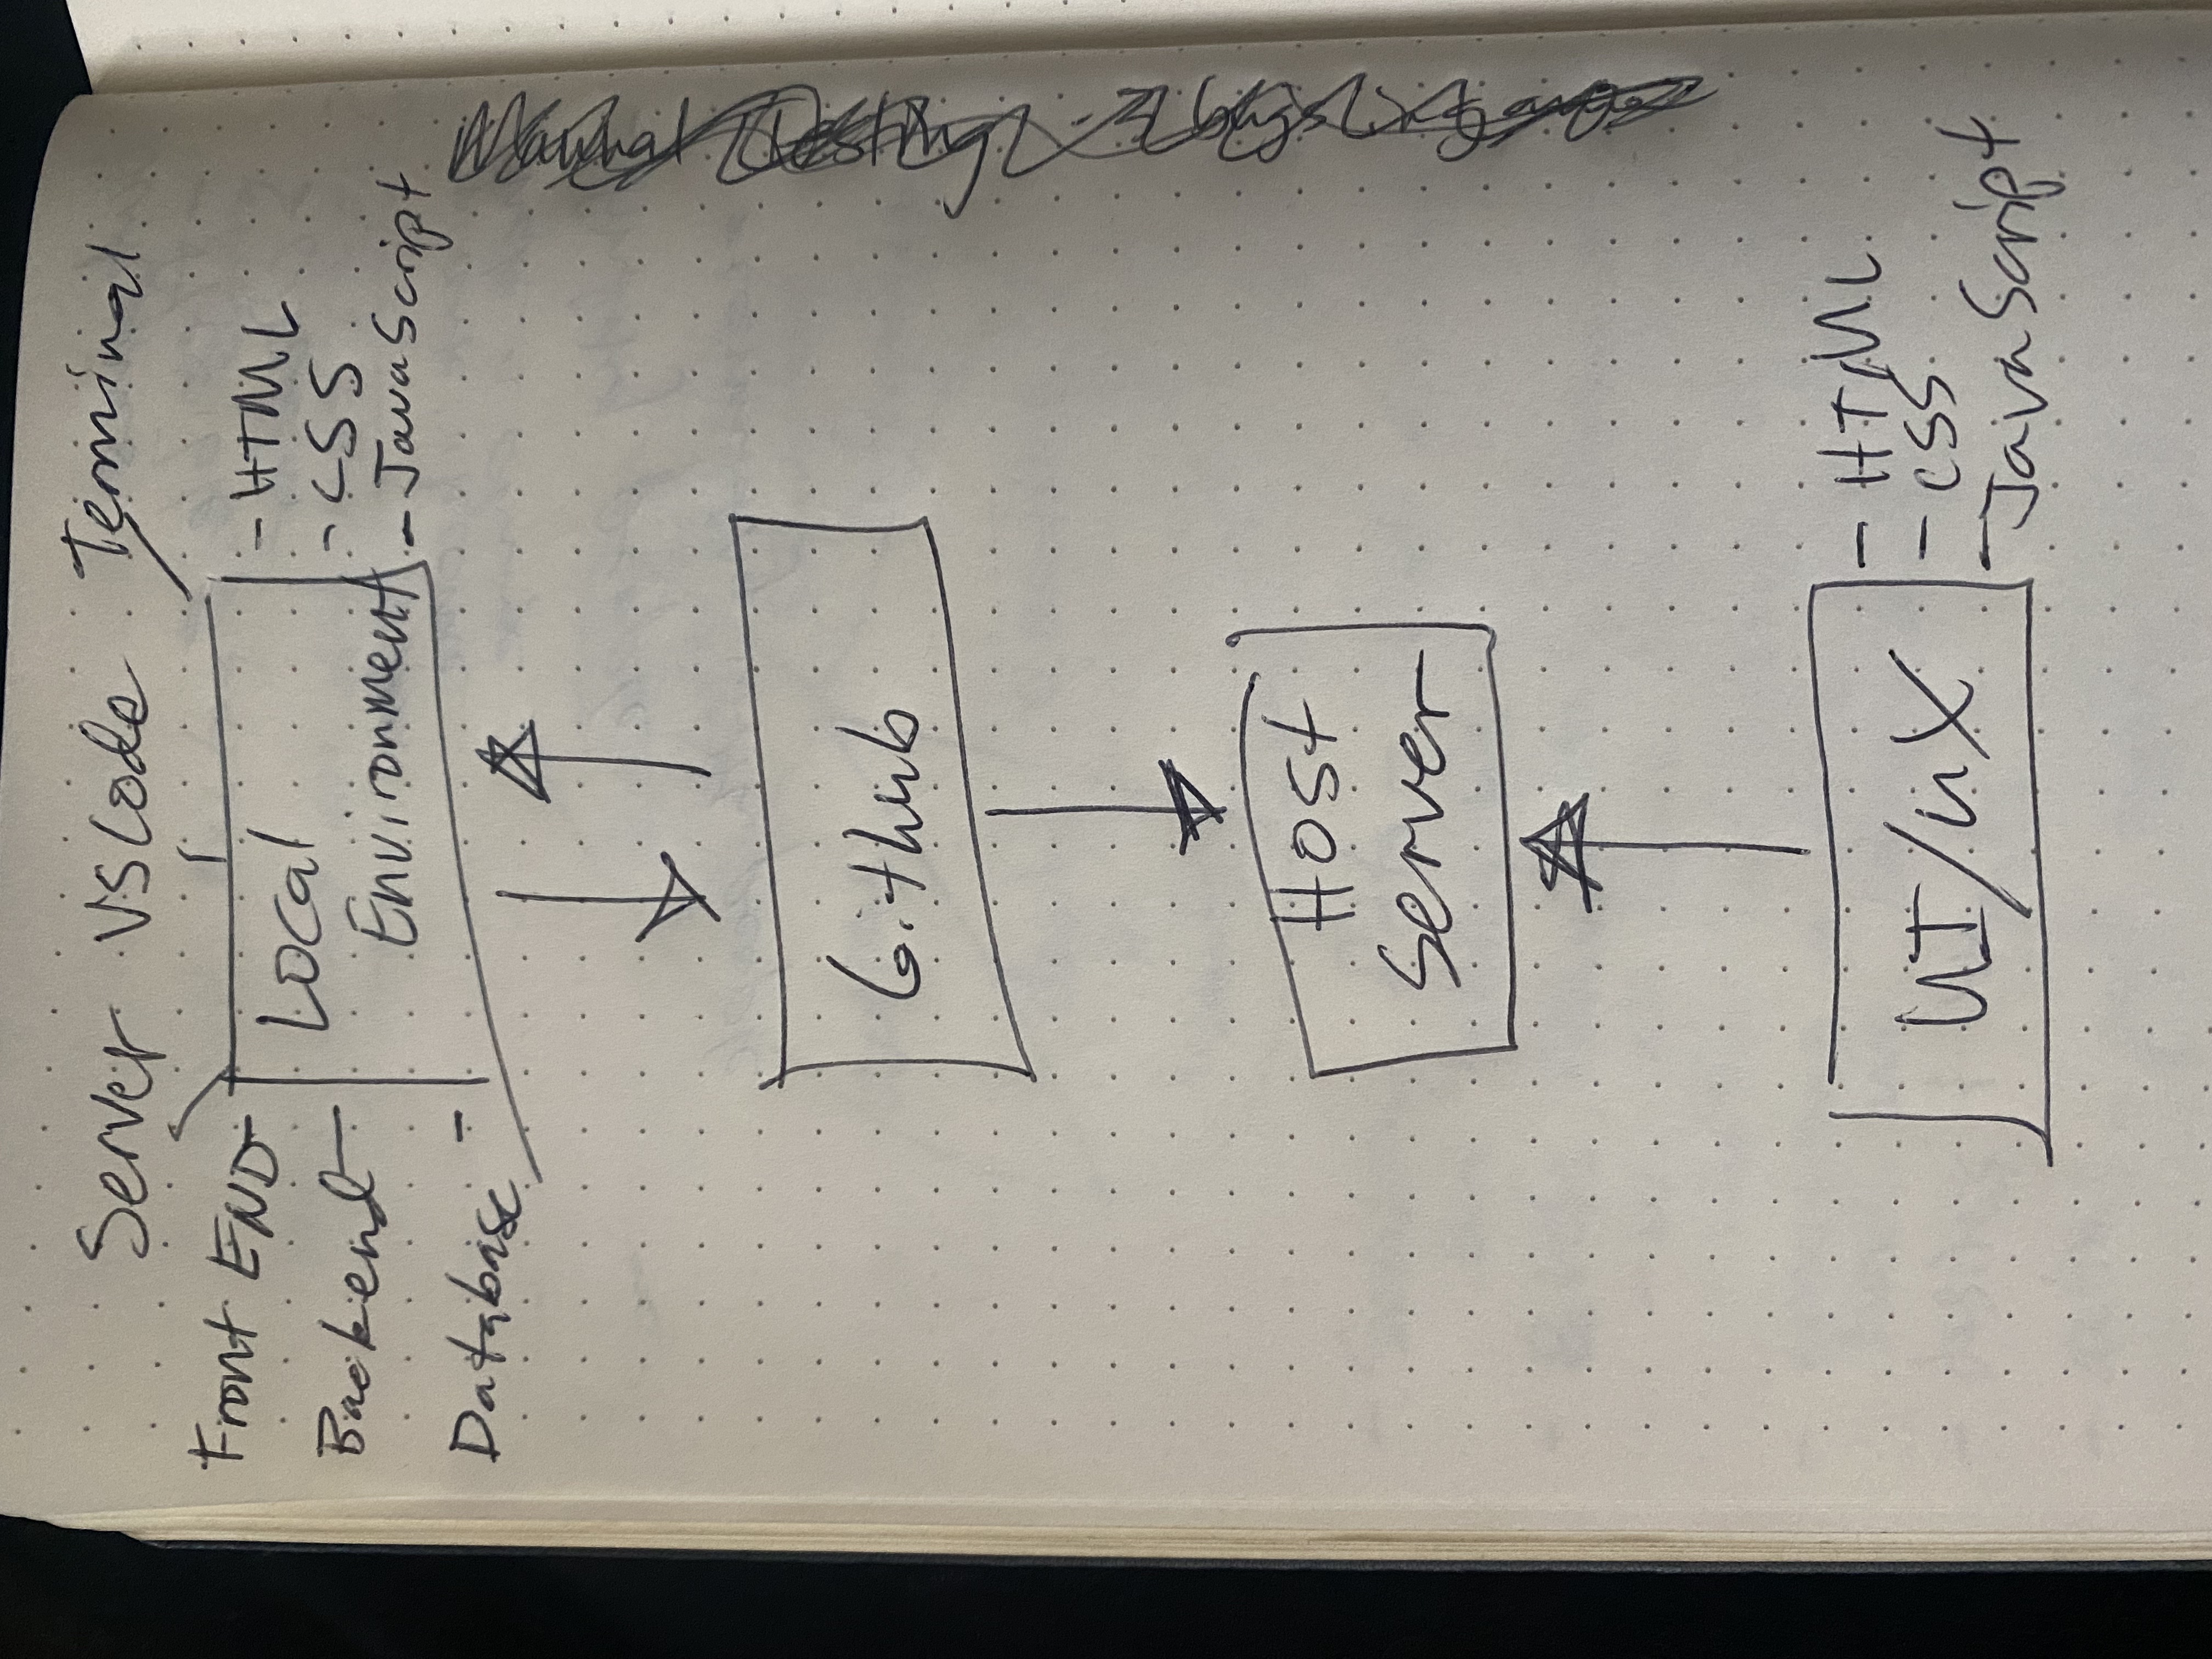 Server VSCode Terminal
Front END
Backend
Database
Local
Environment
- HTML
- CSS
- JavaScript
Github
Host
Server
UI/UX
- HTML
- CSS
- JavaScript